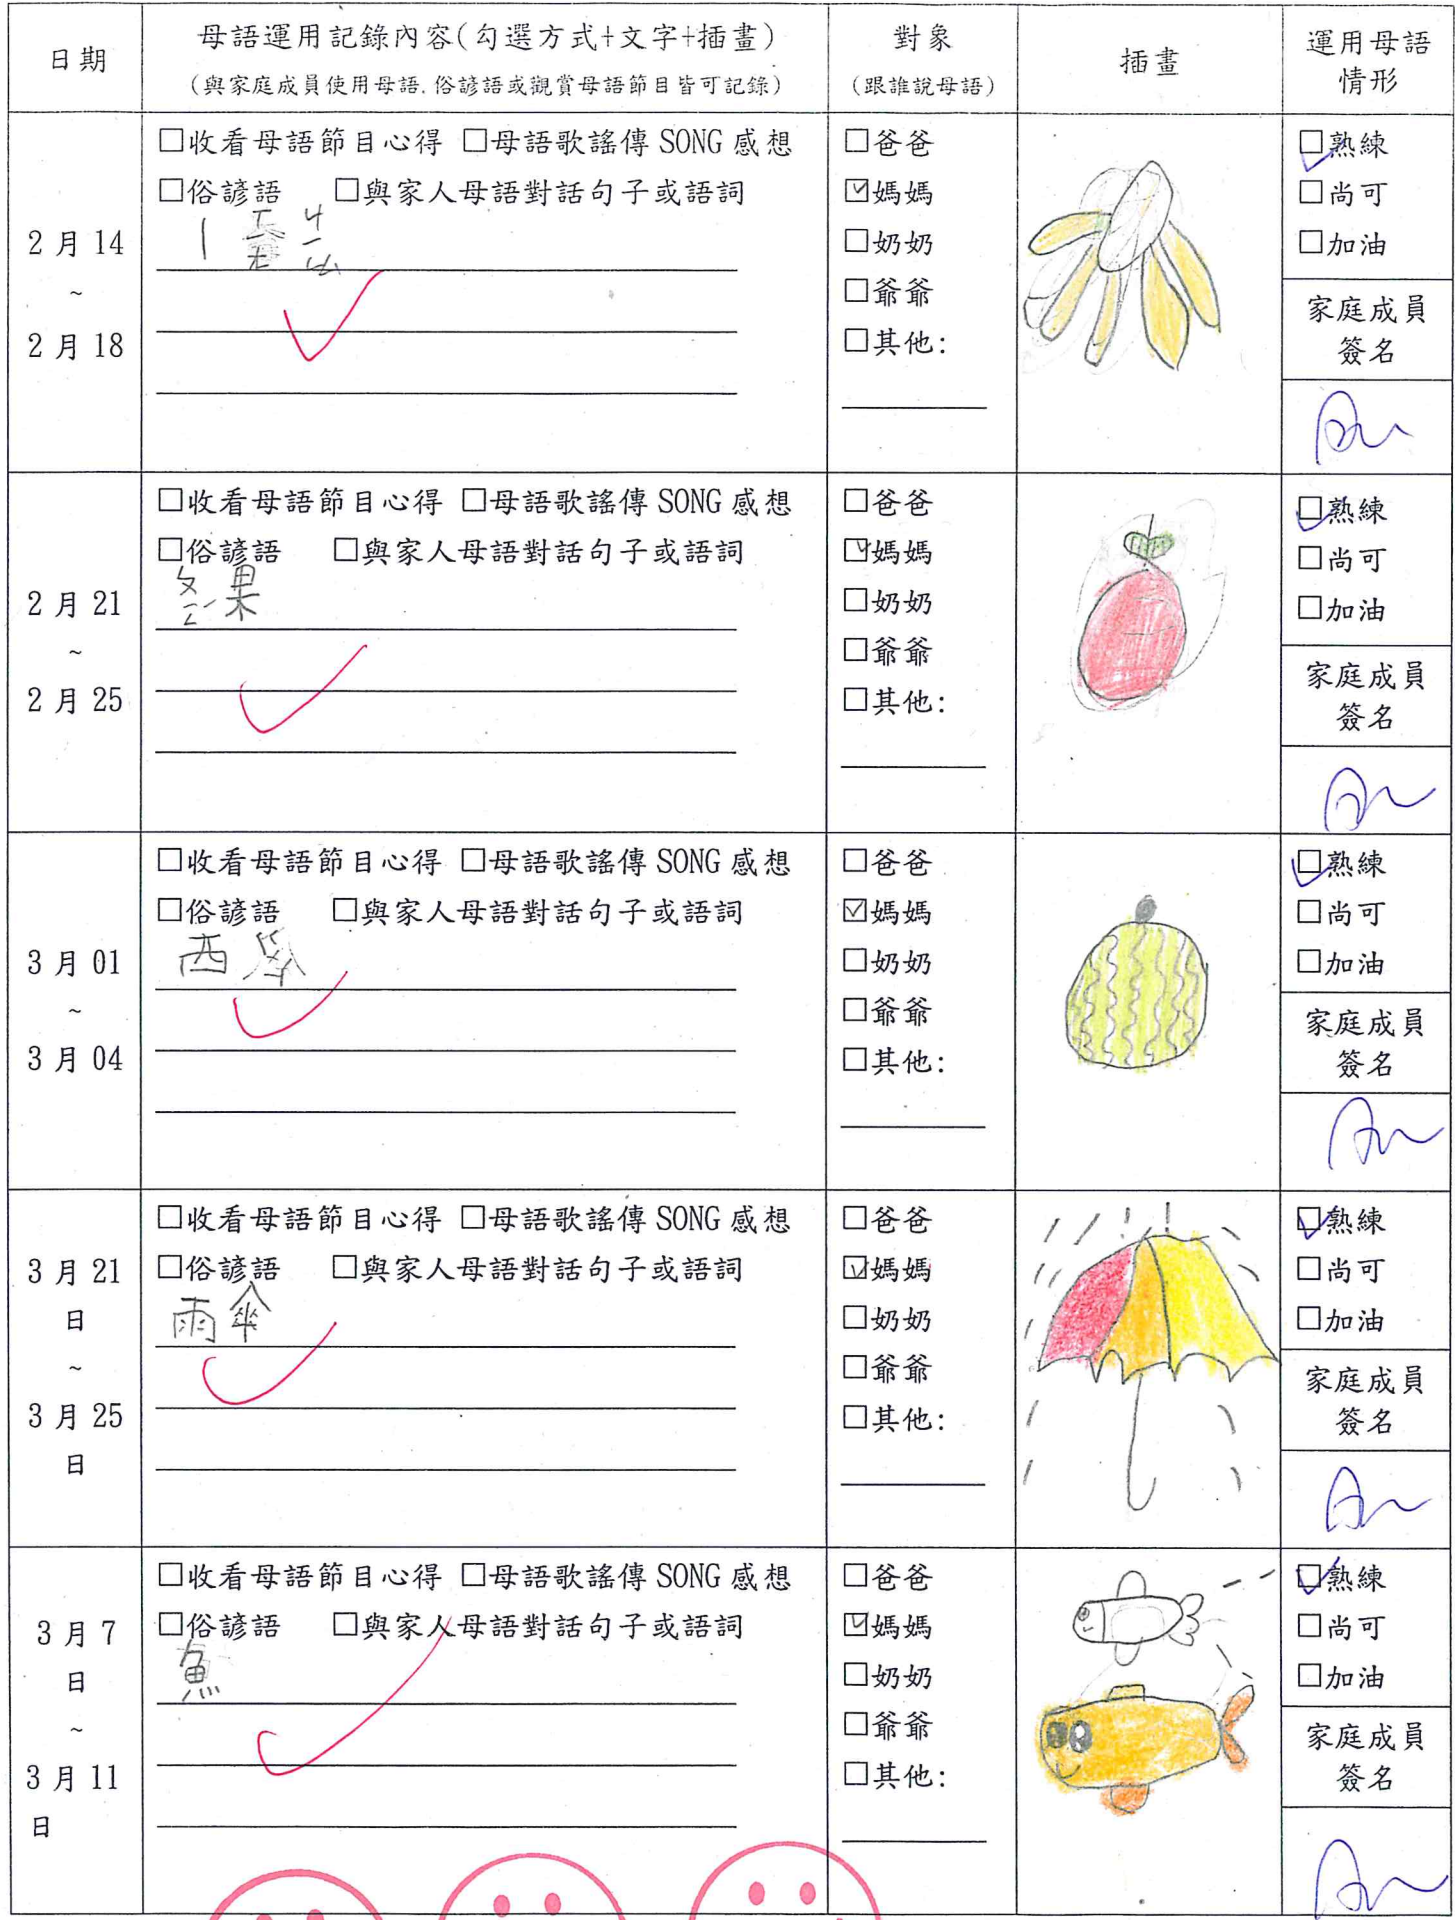 日期
母語運用記錄內容(勾選方式+文字+插畫)
(與家庭成員使用母語.俗諺語或觀賞母語節目皆可記錄)
對象
(跟誰說母語)
插畫
運用母語
情形
2月14
~
2月18
□收看母語節目心得 □母語歌謠傳 SONG 感想
□俗諺語 □與家人母語對話句子或語詞
□爸爸
☑媽媽
□奶奶
□爺爺
□其他:
☑熟練
□尚可
□加油
家庭成員
簽名
2月21
~
2月25
□收看母語節目心得 □母語歌謠傳 SONG 感想
□俗諺語 □與家人母語對話句子或語詞
果
□爸爸
☑媽媽
□奶奶
□爺爺
□其他:
☑熟練
□尚可
□加油
家庭成員
簽名
3月01
~
3月04
□收看母語節目心得 □母語歌謠傳 SONG 感想
□俗諺語 □與家人母語對話句子或語詞
西
□爸爸
☑媽媽
□奶奶
□爺爺
□其他:
☑熟練
□尚可
□加油
家庭成員
簽名
3月21
日
~
3月25
日
□收看母語節目心得 □母語歌謠傳 SONG 感想
□俗諺語 □與家人母語對話句子或語詞
雨傘
□爸爸
☑媽媽
□奶奶
□爺爺
□其他:
☑熟練
□尚可
□加油
家庭成員
簽名
3月7
日
~
3月11
日
□收看母語節目心得 □母語歌謠傳 SONG 感想
□俗諺語 □與家人母語對話句子或語詞
魚
□爸爸
☑媽媽
□奶奶
□爺爺
□其他:
☑熟練
□尚可
□加油
家庭成員
簽名